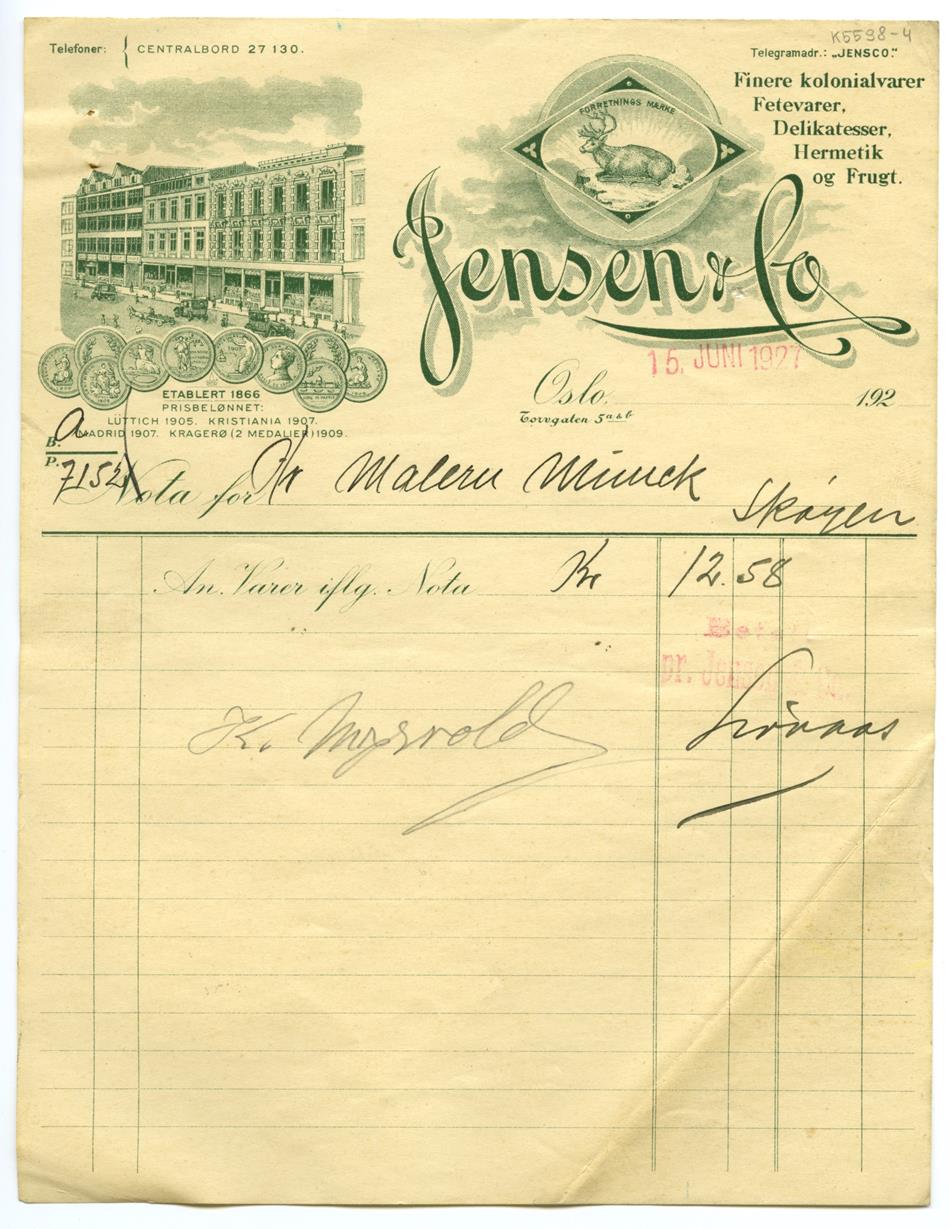 K5598-4
Telefoner: { CENTRALBORD 27 130.
Telegramadr.: „JENSCO."
Finere kolonialvarer
Fetevarer,
Delikatesser,
Hermetik
og Frugt.
FORRETNINGS MÆRKE
Jensen & Co
15. JUNI 1927
Oslo, 192
Torvgaten 5 a & b
ETABLERT 1866
PRISBELØNNET:
LÜTTICH 1905. KRISTIANIA 1907.
MADRID 1907. KRAGERØ (2 MEDALIER) 1909.
B.
P. 7152
Nota for Hr Malern Munck
Skøyen
An. Varer iflg. Nota Kr 12.58
pr. Jensen & Co.
K.